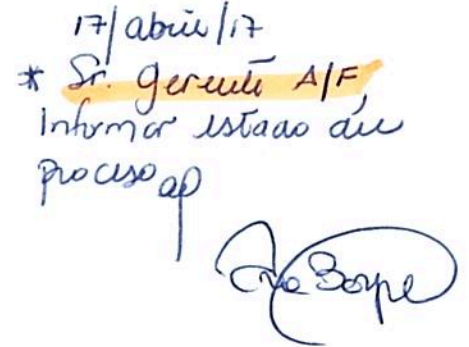 17/abril/17
* Sr. Gerente A/F
Informar estado del
proceso